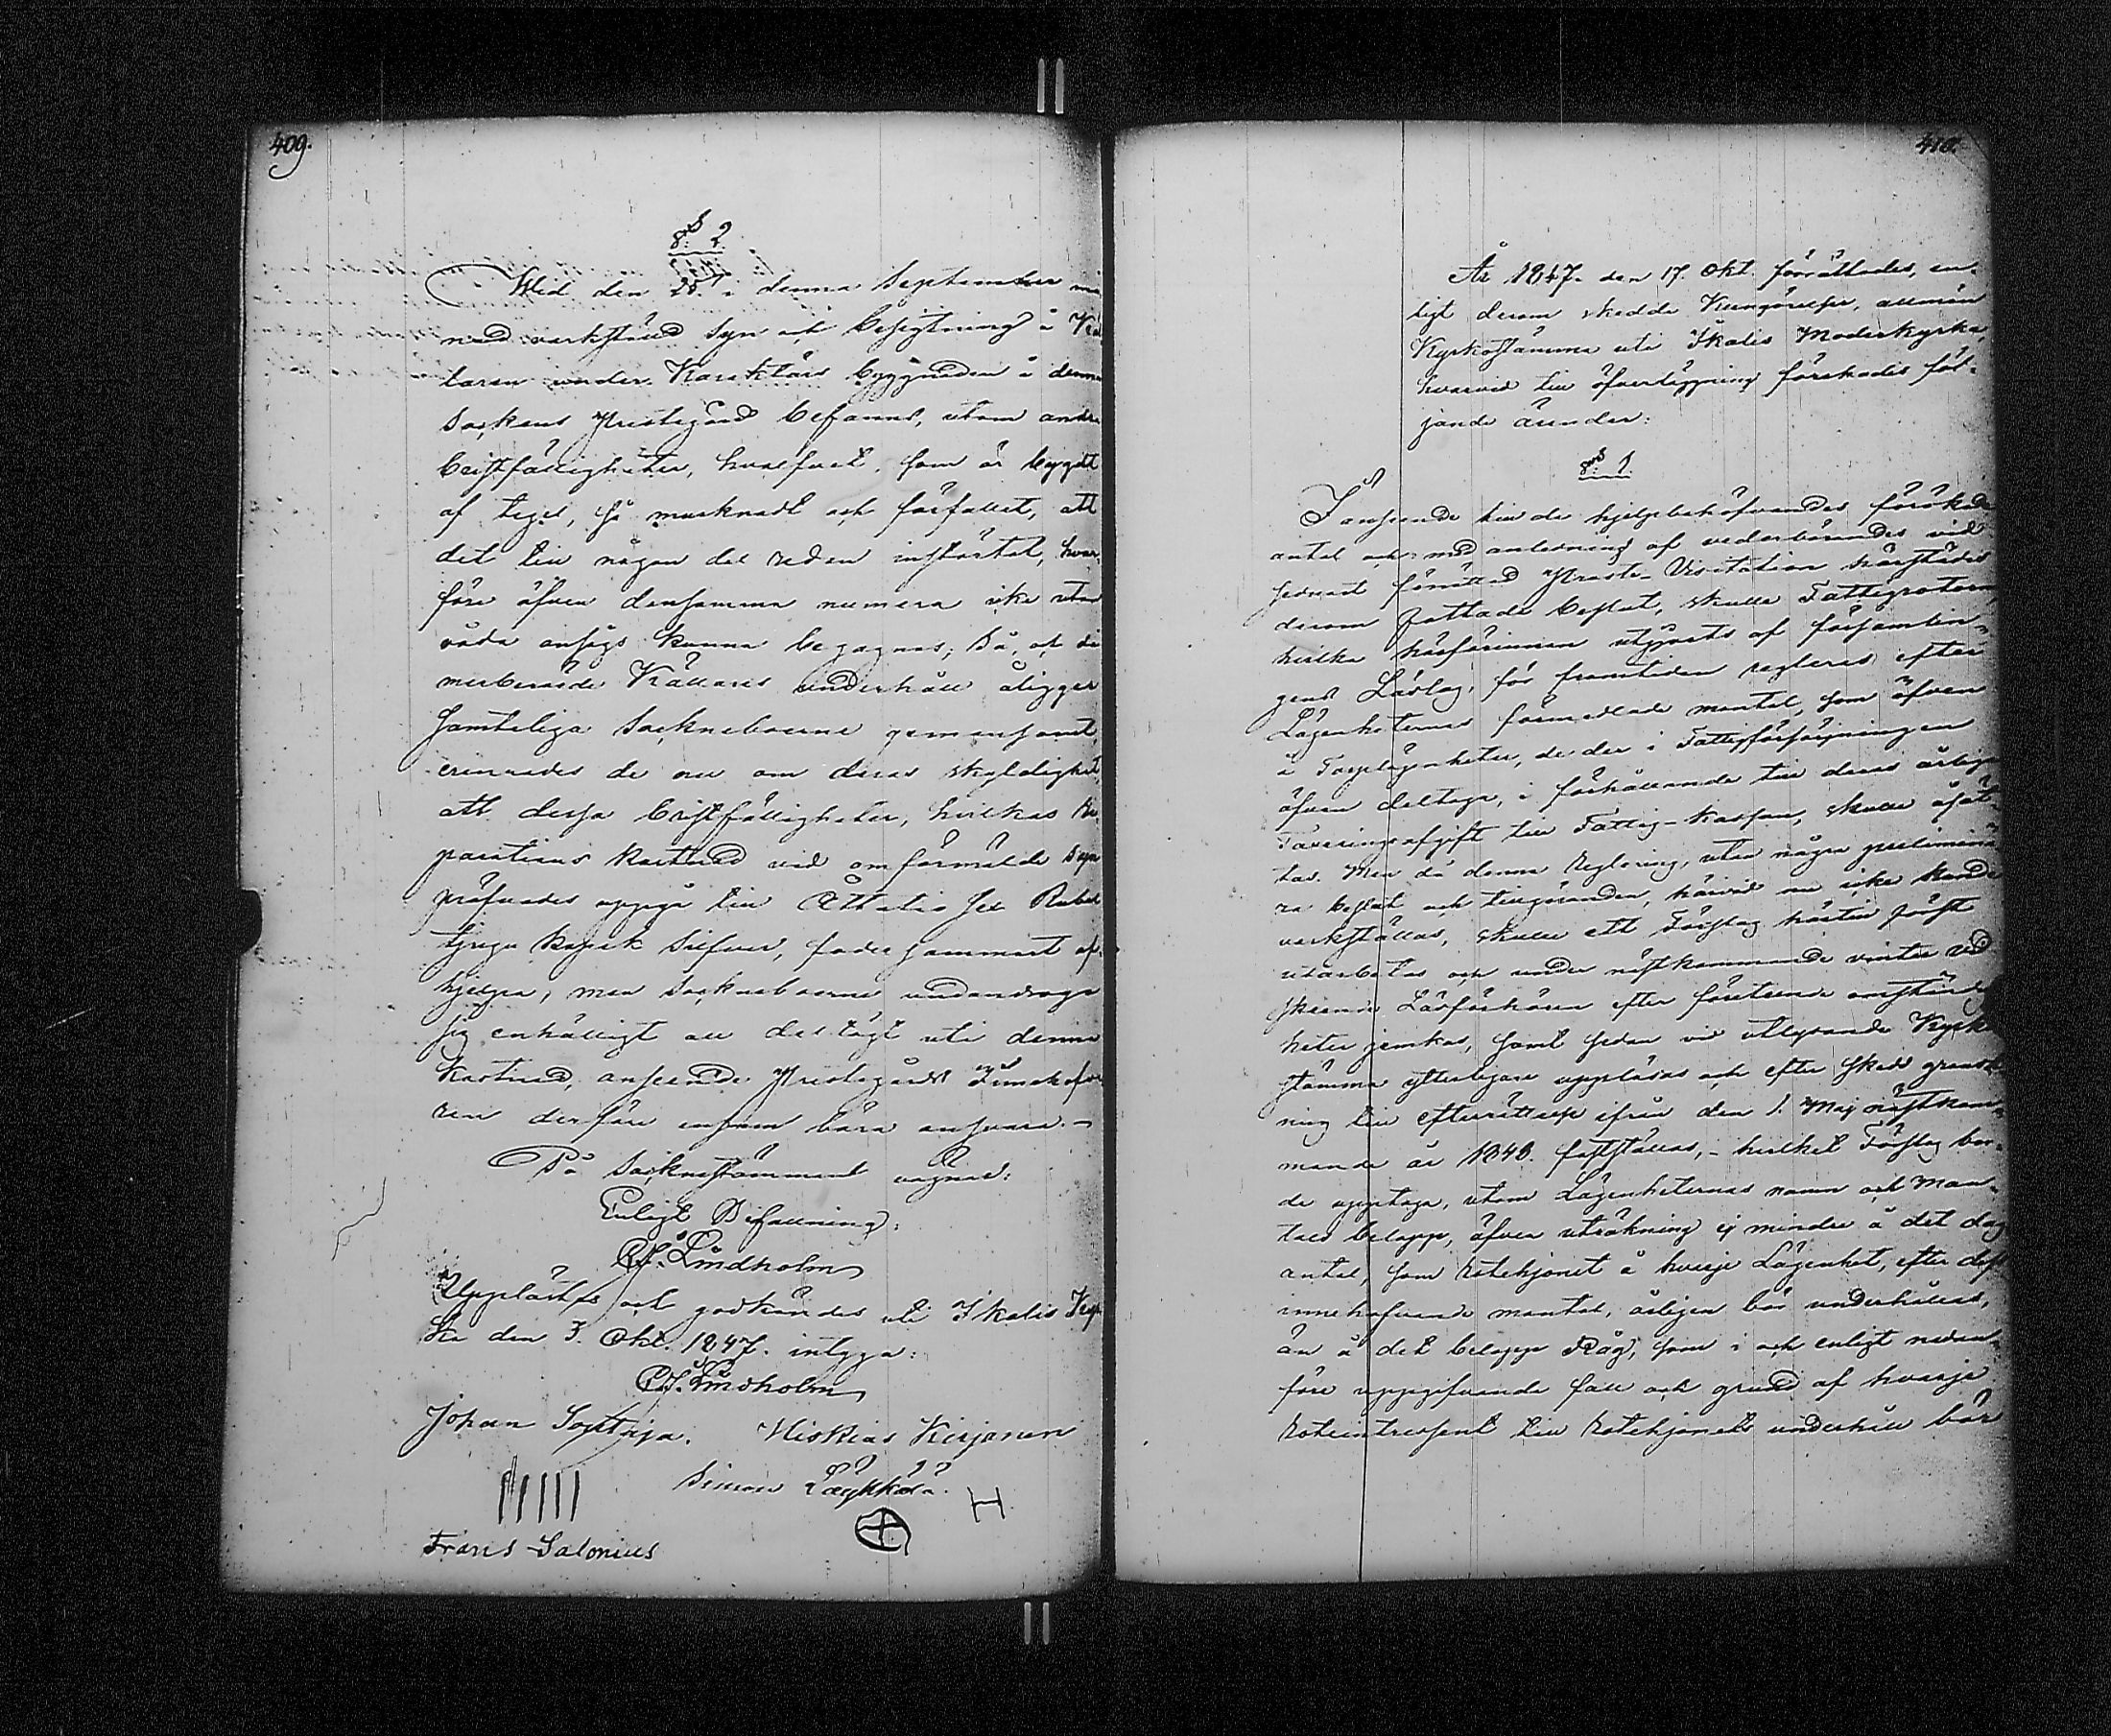 409.
§ 2.
Wid den 28. i denna September må
nad verkstäld Syn och besigtning å Käl
laren under Karaktärs byggnaden å denna
Sockens Prestegård befanns, utom andra
bristfälligheter, hvalfvet, som är bygdt
af tegel, så murknadt och förfallet, att
det till någon del redan instörtat, hvar¬
före äfven densamma numera icke utan
våda ansågs kunna begagnas; Då, af de
merberörde Källares underhåll åligger
samteliga Sockneboerne gemensamt,
erinrades de nu om deras skyldighet,
att dessa bristfälligheter, hvilkas Re¬
parations kostnad vid omförmälde Syn
pröfvades uppgå till Åttatio sex Rubel
tjugu kopek Silfver, foder sammast af¬
hjelpa, men Sockneboerne undandrogo
sig enhälligt all deltagt uti denna
kostnad, anseende Prestegårds Innehafva
ren derföre ensam böra ansvara. –
På Sockenstämmans vägnar:
Enligt Befallning:
C. J. Lindholm
Uppläst och godkändes uti Ikalis Kyr
ka den 3. Okt. 1847. intyga:
C. J. Lindholm
Johan Sopttaja. Hiskias Kirjanen
Simon Läykkälä. H
Frans Salonius
410.
År 1847. den 17. Okt. förrättades, en¬
ligt derom skedde Kungörelser, allmän
Kyrkostämma uti Ikalis Moderkyrka,
hvarvid till öfverläggning förehades föl¬
jande ärender:
§ 1.
I anseende till de hjelpbehöfvandes förökade
antal och med anledning af vederbörandes vid
sednast förrättad Prosts-Visitation härstädes
derom fattade beslut, skulle Fattigrotarne,
hvilka härförinnan utgjorts af församlin¬
gens Läslag, för framtiden regleras efter
Lägenheternas förmedlade mantal, som äfven
å Torplägenheter, de der i Fattigförsörjningen
äfven deltaga, i förhållande till deras årliga
Taxeringsafgift till Fattig-Kassan, skulle åsät¬
tas. Men då denna Reglering, utan några preliminä
ra beslut och tillgöranden, härvid nu icke kunde
verkställas, skulle ett Förslag härtill först
utarbetas och under nästkommande vinter vid
skeende Läsförhören efter företeende omständig
heter jemkas, samt sedan vid utlysande Kyrko
stämma ytterligare uppläsas och efter skedd gransk
ning till efterrättelse ifrån den 1. Maj nästkom¬
mande år 1848. fastställas, – hvilket Förslag bor¬
de upptaga, utom Lägenheternas namn och Man¬
tals belopp, äfven uträkning ej mindre å det dag
antal, som Rotehjonet å hvarje Lägenhet, efter dess
innehafvande mantal, årligen bör underhållas,
än å det belopp Råg, som i och enligt nedan¬
före uppgifvande fall och grund af hvarje
Roteintressent till Rotehjonets underhåll bör